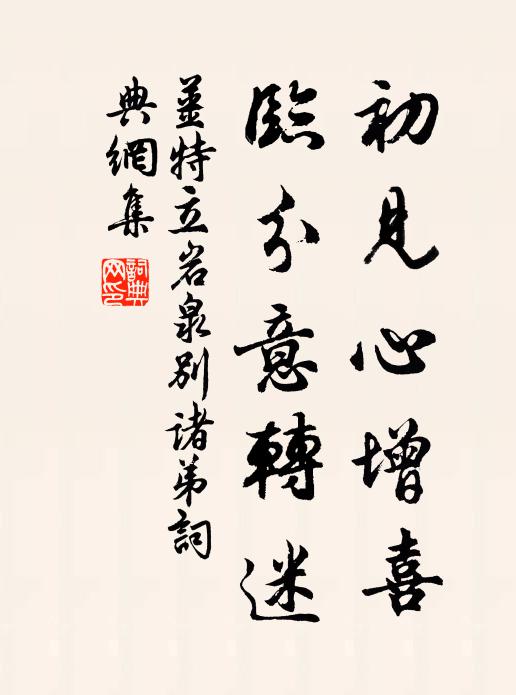 初見心增喜
臨分意轉迷
姜特立岩泉別諸弟詞
典網集
詞典網印